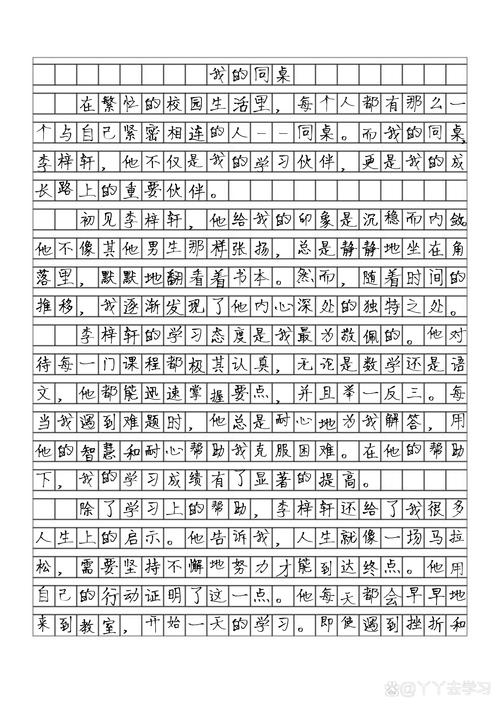 我的同桌
在繁忙的校园生活里，每个人都有那么一
个与自己紧密相连的人--同桌。而我的同桌，
李梓轩，他不仅是我的学习伙伴，更是我的成
长路上的重要伙伴。
初见李梓轩，他给我的印象是沉稳而内敛。
他不像其他男生那样张扬，总是静静地坐在角
落里，默默地翻看着书本。然而，随着时间的
推移，我逐渐发现了他内心深处的独特之处。
李梓轩的学习态度是我最为敬佩的。他对
待每一门课程都极其认真，无论是数学还是语
文，他都能迅速掌握要点，并且举一反三。每
当我遇到难题时，他总是耐心地为我解答，用
他的智慧和耐心帮助我克服困难。在他的帮助
下，我的学习成绩有了显著的提高。
除了学习上的帮助，李梓轩还给了我很多
人生上的启示。他告诉我，人生就像一场马拉
松，需要坚持不懈地努力才能到达终点。他用
自己的行动证明了这一点。他每天都会早早地
来到教室，开始一天的学习。即使遇到挫折和
丫丫去学习